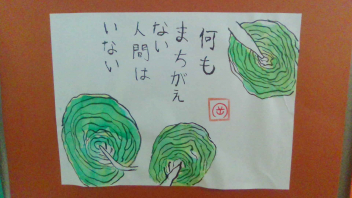 何も
まちがえ
ない
人間は
いない